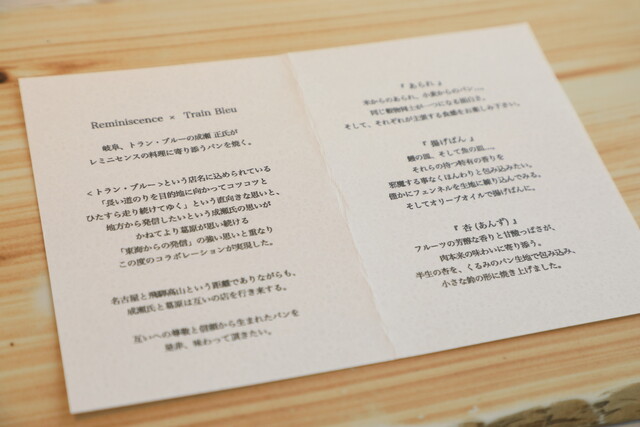 Reminiscence × Train Bleu
岐阜、トラン・ブルーの成瀬 正氏が
レミニセンスの料理に寄り添うパンを焼く。
<トラン・ブルー>という店名に込められている
「長い道のりを目的地に向かってコツコツと
ひたすら走り続けてゆく」という直向きな思いと、
地方から発信したいという成瀬氏の思いが
かねてより葛原が思い続ける
「東海からの発信」の強い思いと重なり
この度のコラボレーションが実現した。
名古屋と飛騨高山という距離でありながらも、
成瀬氏と葛原は互いの店を行き来する。
互いへの尊敬と信頼から生まれたパンを
是非、味わって頂きたい。
『 あられ 』
米からのあられ、小麦からのパン…。
同じ穀物同士が一つになる面白さ、
そして、それぞれが主張する食感をお楽しみ下さい。
『 揚げぱん 』
鱧の皿、そして魚の皿…。
それらの持つ特有の香りを
邪魔する事なくほんわりと包み込みたい。
僅かにフェンネルを生地に練り込んでみる。
そしてオリーブオイルで揚げぱんに。
『 杏 (あんず) 』
フルーツの芳醇な香りと甘酸っぱさが、
肉本来の味わいに寄り添う。
半生の杏を、くるみのパン生地で包み込み、
小さな鈴の形に焼き上げました。